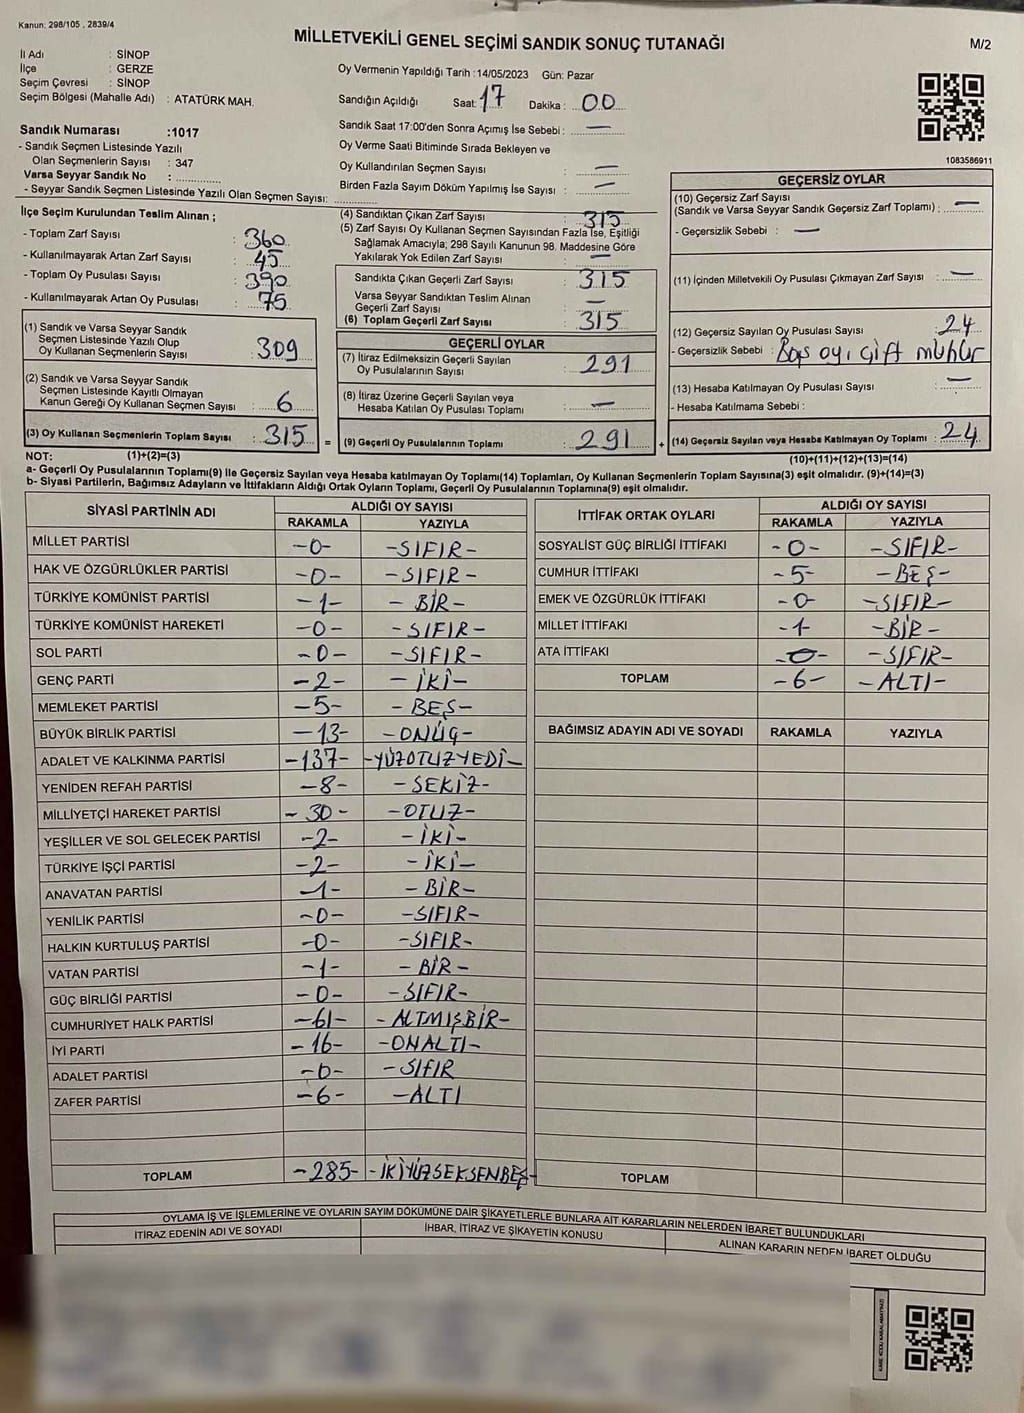 Kanun: 298/105 , 2839/4
MİLLETVEKİLİ GENEL SEÇİMİ SANDIK SONUÇ TUTANAĞI
M/2
İl Adı : SİNOP
İlçe : GERZE
Seçim Çevresi : SİNOP
Seçim Bölgesi (Mahalle Adı) : ATATÜRK MAH.
Oy Vermenin Yapıldığı Tarih :14/05/2023 Gün: Pazar
Sandığın Açıldığı Saat: 17 Dakika : 00
Sandık Saat 17:00'den Sonra Açımış İse Sebebi : —
Oy Verme Saati Bitiminde Sırada Bekleyen ve
Oy Kullandırılan Seçmen Sayısı : —
Birden Fazla Sayım Döküm Yapılmış İse Sayısı : —
1083586911
Sandık Numarası :1017
- Sandık Seçmen Listesinde Yazılı
Olan Seçmenlerin Sayısı : 347
Varsa Seyyar Sandık No : ..............
- Seyyar Sandık Seçmen Listesinde Yazılı Olan Seçmen Sayısı: ..............
İlçe Seçim Kurulundan Teslim Alınan ;
- Toplam Zarf Sayısı : 360
- Kullanılmayarak Artan Zarf Sayısı : 45
- Toplam Oy Pusulası Sayısı : 390
- Kullanılmayarak Artan Oy Pusulası : 75
(1) Sandık ve Varsa Seyyar Sandık
Seçmen Listesinde Yazılı Olup
Oy Kullanan Seçmenlerin Sayısı : 309
(2) Sandık ve Varsa Seyyar Sandık
Seçmen Listesinde Kayıtlı Olmayan
Kanun Gereği Oy Kullanan Seçmen Sayısı : 6
(3) Oy Kullanan Seçmenlerin Toplam Sayısı : 315
(1)+(2)=(3)
(4) Sandıktan Çıkan Zarf Sayısı : 315
(5) Zarf Sayısı Oy Kullanan Seçmen Sayısından Fazla İse, Eşitliği
Sağlamak Amacıyla; 298 Sayılı Kanunun 98. Maddesine Göre
Yakılarak Yok Edilen Zarf Sayısı : —
Sandıkta Çıkan Geçerli Zarf Sayısı : 315
Varsa Seyyar Sandıktan Teslim Alınan
Geçerli Zarf Sayısı : —
(6) Toplam Geçerli Zarf Sayısı : 315
GEÇERLİ OYLAR
(7) İtiraz Edilmeksizin Geçerli Sayılan
Oy Pusulalarının Sayısı : 291
(8) İtiraz Üzerine Geçerli Sayılan veya
Hesaba Katılan Oy Pusulası Toplamı : —
= (9) Geçerli Oy Pusulalarının Toplamı : 291
GEÇERSİZ OYLAR
(10) Geçersiz Zarf Sayısı
(Sandık ve Varsa Seyyar Sandık Geçersiz Zarf Toplamı) : —
- Geçersizlik Sebebi : —
(11) İçinden Milletvekili Oy Pusulası Çıkmayan Zarf Sayısı : —
(12) Geçersiz Sayılan Oy Pusulası Sayısı : 24
- Geçersizlik Sebebi : Boş oyı çift mühür
(13) Hesaba Katılmayan Oy Pusulası Sayısı : —
- Hesaba Katılmama Sebebi :
+ (14) Geçersiz Sayılan veya Hesaba Katılmayan Oy Toplamı : 24
(10)+(11)+(12)+(13)=(14)
NOT:
a- Geçerli Oy Pusulalarının Toplamı(9) ile Geçersiz Sayılan veya Hesaba katılmayan Oy Toplamı(14) Toplamları, Oy Kullanan Seçmenlerin Toplam Sayısına(3) eşit olmalıdır. (9)+(14)=(3)
b- Siyasi Partilerin, Bağımsız Adayların ve İttifakların Aldığı Ortak Oyların Toplamı, Geçerli Oy Pusulalarının Toplamına(9) eşit olmalıdır.
SİYASİ PARTİNİN ADI ALDIĞI OY SAYISI
RAKAMLA YAZIYLA
MİLLET PARTİSİ -0- -SIFIR-
HAK VE ÖZGÜRLÜKLER PARTİSİ -0- -SIFIR-
TÜRKİYE KOMÜNİST PARTİSİ -1- -BİR-
TÜRKİYE KOMÜNİST HAREKETİ -0- -SIFIR-
SOL PARTİ -0- -SIFIR-
GENÇ PARTİ -2- -İKİ-
MEMLEKET PARTİSİ -5- -BEŞ-
BÜYÜK BİRLİK PARTİSİ -13- -ONÜÇ-
ADALET VE KALKINMA PARTİSİ -137- -YÜZOTUZYEDİ-
YENİDEN REFAH PARTİSİ -8- -SEKİZ-
MİLLİYETÇİ HAREKET PARTİSİ -30- -OTUZ-
YEŞİLLER VE SOL GELECEK PARTİSİ -2- -İKİ-
TÜRKİYE İŞÇİ PARTİSİ -2- -İKİ-
ANAVATAN PARTİSİ -1- -BİR-
YENİLİK PARTİSİ -0- -SIFIR-
HALKIN KURTULUŞ PARTİSİ -0- -SIFIR-
VATAN PARTİSİ -1- -BİR-
GÜÇ BİRLİĞİ PARTİSİ -0- -SIFIR-
CUMHURİYET HALK PARTİSİ -61- -ALTMIŞBİR-
İYİ PARTİ -16- -ONALTI-
ADALET PARTİSİ -0- -SIFIR
ZAFER PARTİSİ -6- -ALTI
TOPLAM -285- -İKİYÜZSEKSENBEŞ-
İTTİFAK ORTAK OYLARI ALDIĞI OY SAYISI
RAKAMLA YAZIYLA
SOSYALİST GÜÇ BİRLİĞİ İTTİFAKI -0- -SIFIR-
CUMHUR İTTİFAKI -5- -BEŞ-
EMEK VE ÖZGÜRLÜK İTTİFAKI -0- -SIFIR-
MİLLET İTTİFAKI -1- -BİR-
ATA İTTİFAKI -0- -SIFIR-
TOPLAM -6- -ALTI-
BAĞIMSIZ ADAYIN ADI VE SOYADI RAKAMLA YAZIYLA
TOPLAM
OYLAMA İŞ VE İŞLEMLERİNE VE OYLARIN SAYIM DÖKÜMÜNE DAİR ŞİKAYETLERLE BUNLARA AİT KARARLARIN NELERDEN İBARET BULUNDUKLARI
İTİRAZ EDENİN ADI VE SOYADI İHBAR, İTİRAZ VE ŞİKAYETİN KONUSU ALINAN KARARIN NEDEN İBARET OLDUĞU